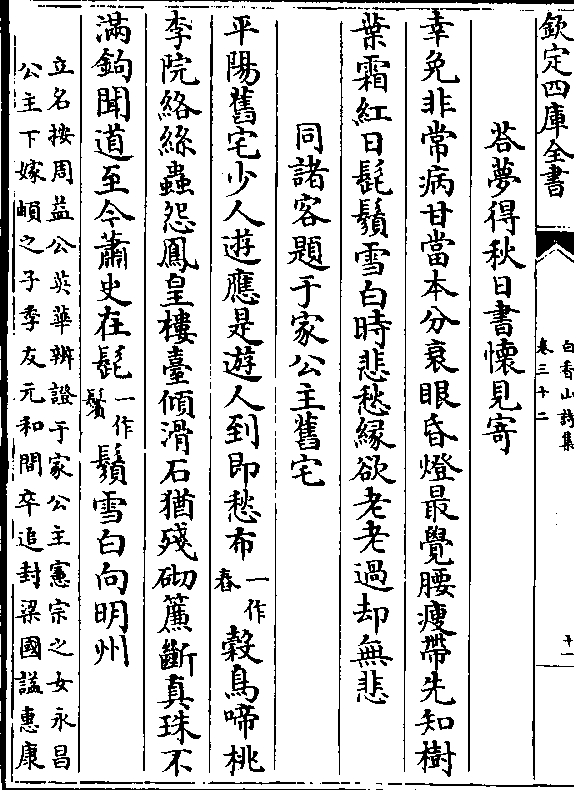 欽定四庫全書
白香山詩集
卷三十二
十一
荅夢得秋日書懷見寄
幸免非常病甘當本分衰眼昏燈最覺腰瘦帶先知樹
葉霜紅日髭鬚雪白時悲愁緣欲老老過却無悲
同諸客題于家公主舊宅
平陽舊宅少人遊應是遊人到即愁布一作春穀鳥啼桃
李院絡絲蟲怨鳳皇樓臺傾滑石猶殘砌簾斷真珠不
滿鉤聞道至今蕭史在髭一作鬢鬚雪白向明州
立名按周益公英華辨證于家公主憲宗之女永昌
公主下嫁頔之子季友元和間卒追封梁國諡惠康